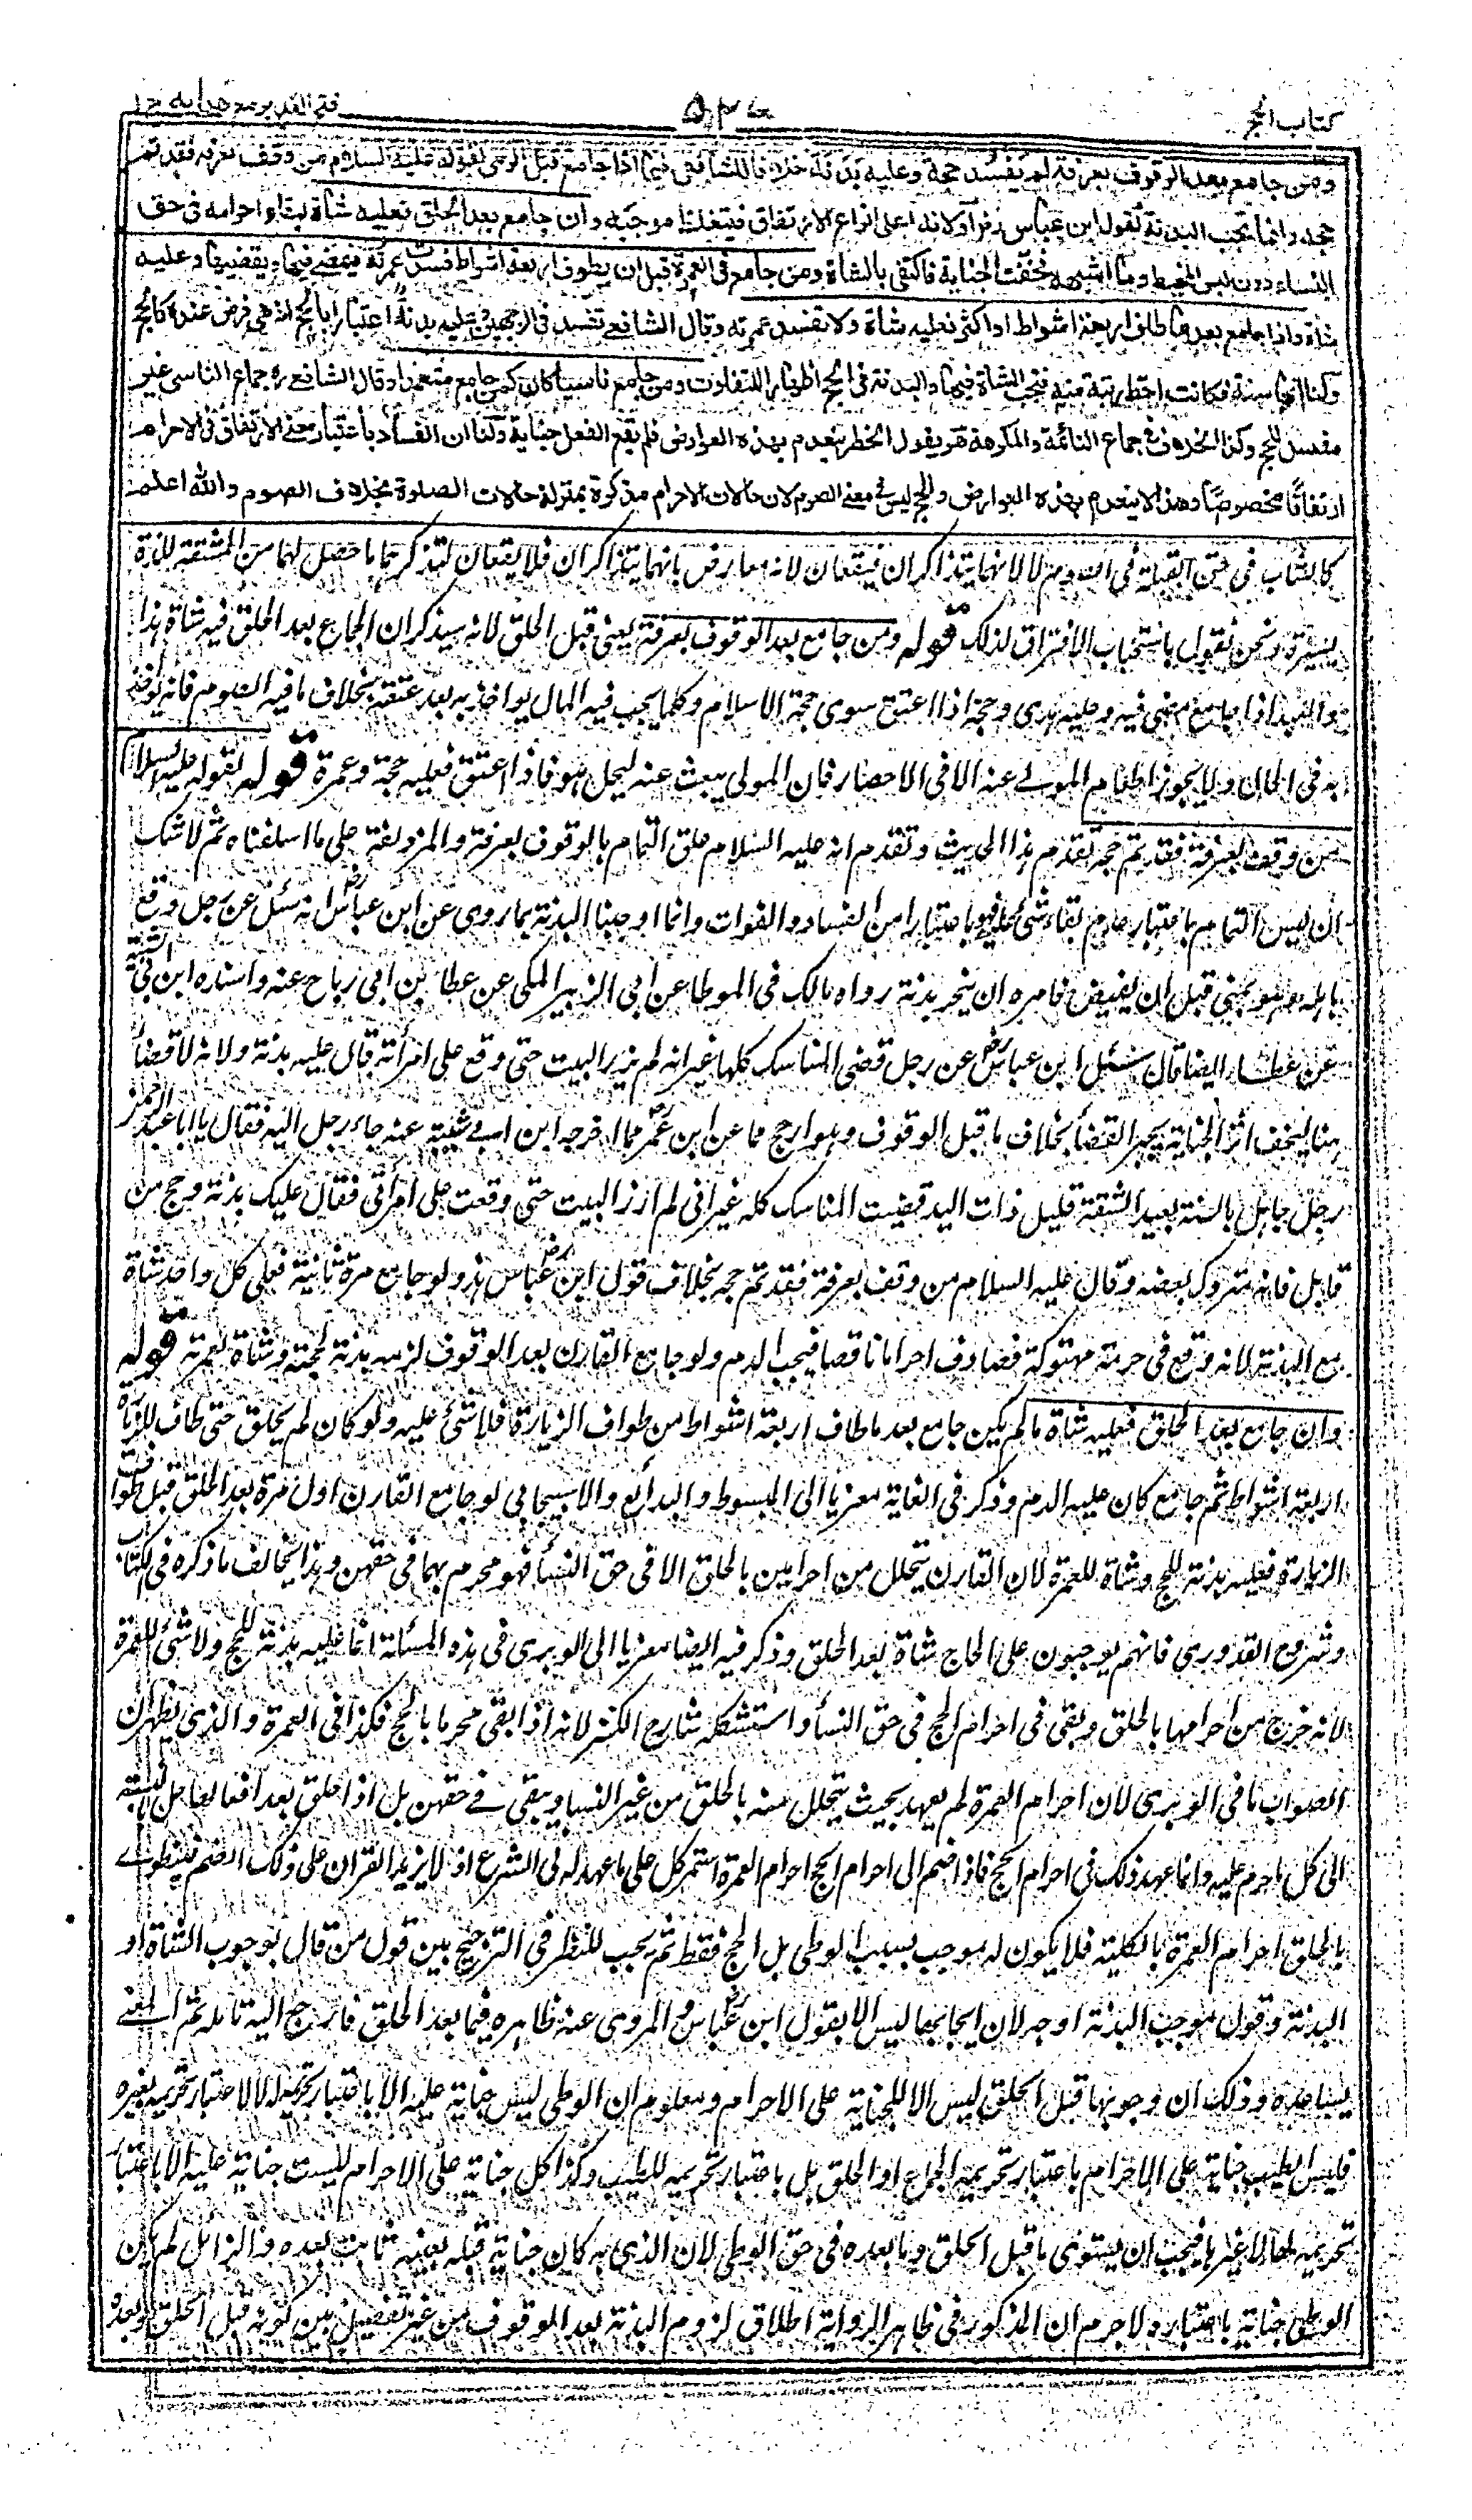 كتاب الحج
٥٣٤
فتح القدير مع هدايه ج ١
ومن جامع بعد الوقوف بعرفة لم يفسد حجه وعليه بدنة خلافا للشافعى فيما اذا جامع قبل الرمى لقوله عليه السلام من وقف بعرفة فقد تم
حجه وانما تجب البدنة لقول ابن عباس رض اولانه اعلى انواع الارتفاق فيتغلظ موجبه وان جامع بعد الحلق فعليه شاة لبقاء احرامه فى حق
النساء دون لبس المخيط وما اشبهه فخفت الجناية فاكتفى بالشاة ومن جامع فى العمرة قبل ان يطوف اربعة اشواط فسدت عمرته فيمضى فيها ويقضيها وعليه
شاة واذا جامع بعد ما طاف اربعة اشواط او اكثر فعليه شاة ولا تفسد عمرته وقال الشافعى تفسد فى الوجهين وعليه بدنة اعتبارا بالحج اذ هى فرض عنده كالحج
ولنا انها سنة فكانت احط رتبة منه فتجب الشاة فيها والبدنة فى الحج اظهارا للتفاوت ومن جامع ناسيا كان كمن جامع متعمدا وقال الشافعى ره جماع الناسى غير
مفسد للحج وكذا الخلاف فى جماع النائمة والمكرهة هو يقول الحظر ينعدم بهذه العوارض فلم يقع الفعل جناية ولنا ان الفساد باعتبار معنى الارتفاق فى الاحرام
ارتفاقا مخصوصا وهذا لا ينعدم بهذه العوارض والحج ليس فى معنى الصوم لان حالات الاحرام مذكرة بمنزلة حالات الصلوة بخلاف الصوم والله اعلم
كالشاب فى حق القبلة فى الصوم لا لانهما يتذاكران فيقعان لانه معارض بانهما يتذاكران فلا يقعان لتذكرهما ما حصل لهما من المشقة للذة
يسيرة ونحن نقول باستحباب الافتراق لذلك قوله ومن جامع بعد الوقوف بعرفة يعنى قبل الحلق لانه سيذكر ان الجماع بعد الحلق فيه شاة هذا
والعبد اذا جامع مضى فيه وعليه هدى وحجة اذا اعتق سوى حجة الاسلام وكلما يجب فيه المال يواخذ به بعد عتقه بخلاف ما فيه الصوم فانه يواخذ
به فى الحال ولا يجوز اطعام المولى عنه الا فى الاحصار فان المولى يبعث عنه ليحل هو فاذا اعتق فعليه حجة وعمرة قوله لقوله عليه السلام
من وقف بعرفة فقد تم حجه تقدم هذا الحديث وتقدم انه عليه السلام علق التمام بالوقوف بعرفة والمزدلفة على ما اسلفناه ثم لا شك
ان ليس التمام باعتبار عدم بقاء شئ عليه فهو باعتبار امن الفساد والفوات وانما اوجبنا البدنة بما روى عن ابن عباس رض انه سئل عن رجل وقع
باهله وهو بمنى قبل ان يفيض فامره ان ينحر بدنة رواه مالك فى الموطا عن ابى الزبير المكى عن عطاء بن ابى رباح عنه واسنده ابن ابى شيبة
عن عطاء ايضا قال سئل ابن عباس رض عن رجل قضى المناسك كلها غير انه لم يزر البيت حتى وقع على امرأته قال عليه بدنة ولانه لا قضاء
هنا ليخف اثر الجناية بجبر القضاء بخلاف ما قبل الوقوف وهو ارجح مما عن ابن عمر رض مما اخرجه ابن ابى شيبة عنه جاء رجل اليه فقال يا ابا عبد الرحمن
رجل جاهل بالسنة بعيد الشقة قليل ذات اليد قضيت المناسك كله غير انى لم ازر البيت حتى وقعت على امرأتى فقال عليك بدنة وحج من
قابل فانه متروك بعضه وقال عليه السلام من وقف بعرفة فقد تم حجه بخلاف قول ابن عباس رض هذا ولو جامع مرة ثانية فعلى كل واحد شاة
مع البدنة لانه وقع فى حرمة مهتوكة فصادف احراما ناقصا فيجب الدم ولو جامع القارن بعد الوقوف لزمه بدنة لحجته وشاة لعمرته قوله
وان جامع بعد الحلق فعليه شاة ما لم يكن جامع بعد ما طاف اربعة اشواط من طواف الزيارة فلا شئ عليه ولو كان لم يحلق حتى طاف للزيارة
اربعة اشواط ثم جامع كان عليه الدم وذكر فى الغاية معزيا الى المبسوط والبدائع والاسبيجابى لو جامع القارن اول مرة بعد الحلق قبل طواف
الزيارة فعليه بدنة للحج وشاة للعمرة لان القارن يتحلل من احرامين بالحلق الا فى حق النساء فهو محرم بهما فى حقهن وهذا يخالف ما ذكره فى الكتاب
وشروح القدورى فانهم يوجبون على الحاج شاة بعد الحلق وذكر فيه ايضا معزيا الى الوبرى فى هذه المسئلة انما عليه بدنة للحج ولا شئ للعمرة
لانه خرج من احرامها بالحلق وبقى فى احرام الحج فى حق النساء واستشكله شارح الكنز لانه اذا بقى محرما بالحج فكذا فى العمرة والذى يظهر ان
الصواب ما فى الوبرى لان احرام العمرة لم يعهد بحيث يتحلل منه بالحلق من غير النساء ويبقى فى حقهن بل اذا حلق بعد افعالها حل بالنسبة
الى كل ما حرم عليه وانما عهد ذلك فى احرام الحج فاذا ضم الى احرام الحج احرام العمرة استمر كل على ما عهد له فى الشرع اذ لا يزيد القران على ذلك الضم فينطوى
بالحلق احرام العمرة بالكلية فلا يكون له موجب بسبب الوطى بل الحج فقط ثم يجب للنظر فى الترجيح بين قول من قال بوجوب الشاة او
البدنة وقول موجب البدنة اوجه لان ايجابها ليس الا بقول ابن عباس رض والمروى عنه ظاهره فيما بعد الحلق فارجع اليه تامله ثم المعنى
يساعده وذلك ان وجوبها قبل الحلق ليس الا للجناية على الاحرام ومعلوم ان الوطى ليس جناية عليه الا باعتبار تحريمه له لا لاعتبار تحريمه بغيره
فليس الطيب جناية على الاحرام باعتبار تحريمه الجماع او الحلق بل باعتبار تحريمه للطيب وكذا كل جناية على الاحرام ليست جناية عليه الا باعتبار
تحريمه لها لا غيرها فيجب ان يستوى ما قبل الحلق وما بعده فى حق الوطى لان الذى به كان جناية قبله بعينه ثابت بعده والزائل لم يكن
الوطى جناية باعتباره لا جرم ان المذكور فى ظاهر الرواية اطلاق لزوم البدنة بعد الوقوف من غير تفصيل بين كونه قبل الحلق او بعده